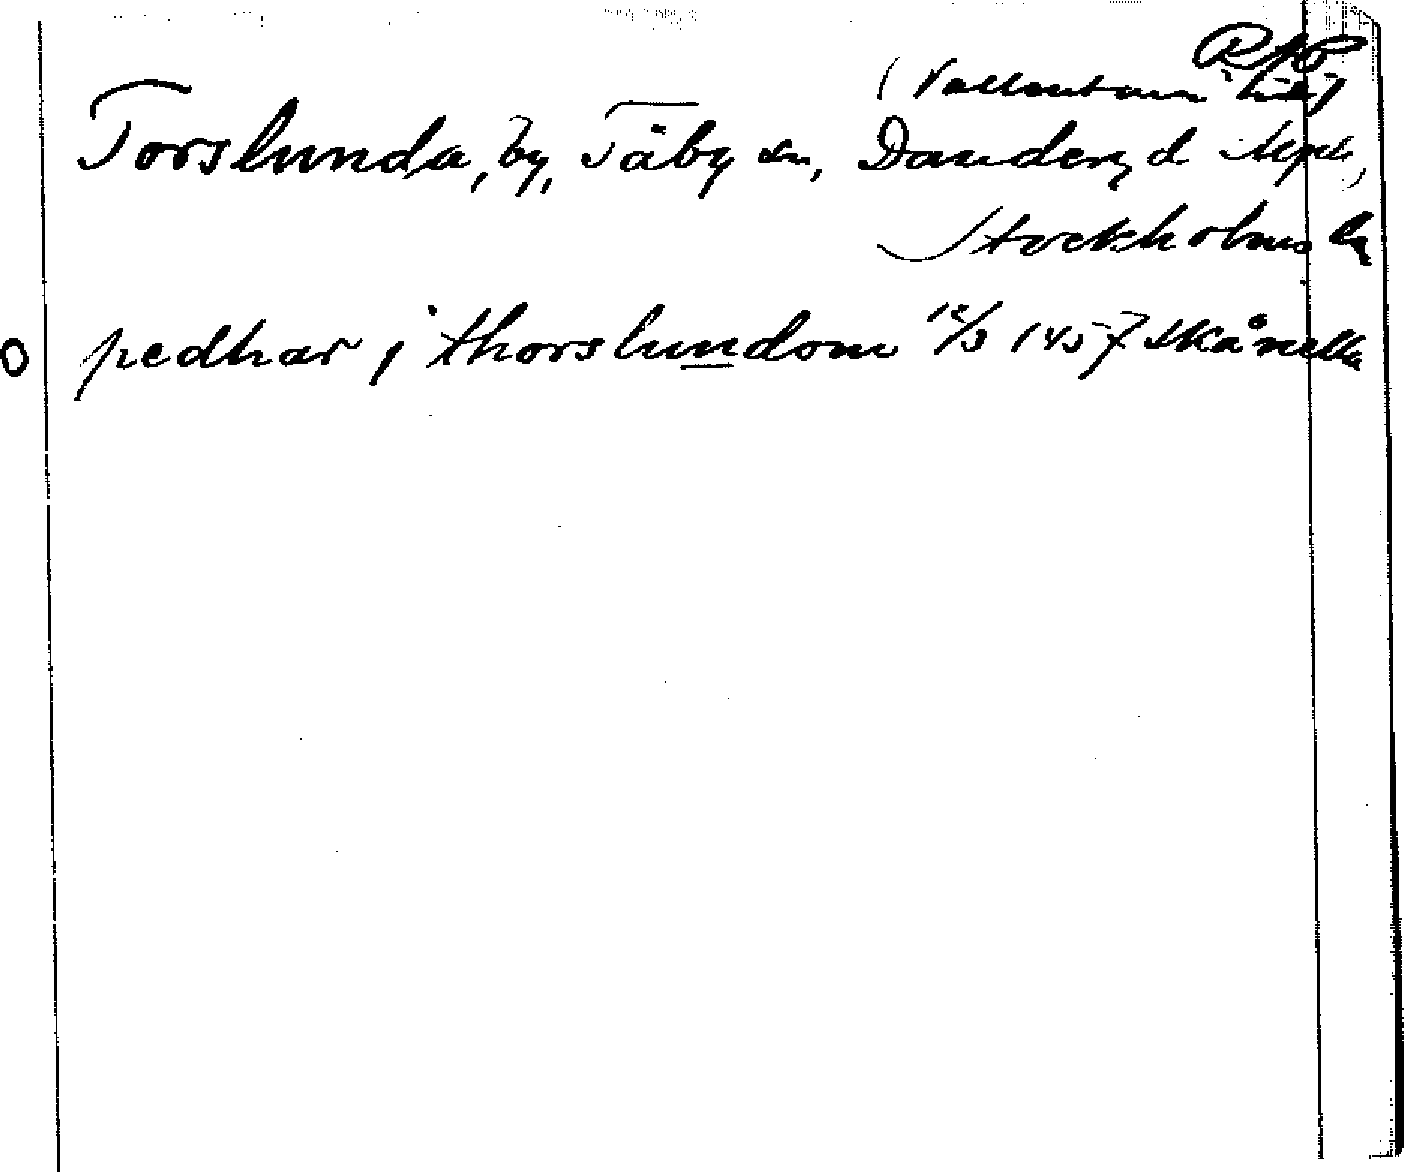 RAP
(Vallentuna tiig)
Torslunda, by, Täby sn, Danderyd skpl,
Stockholms ln
pedhar j thorslundom 12/3 1457 Skånella